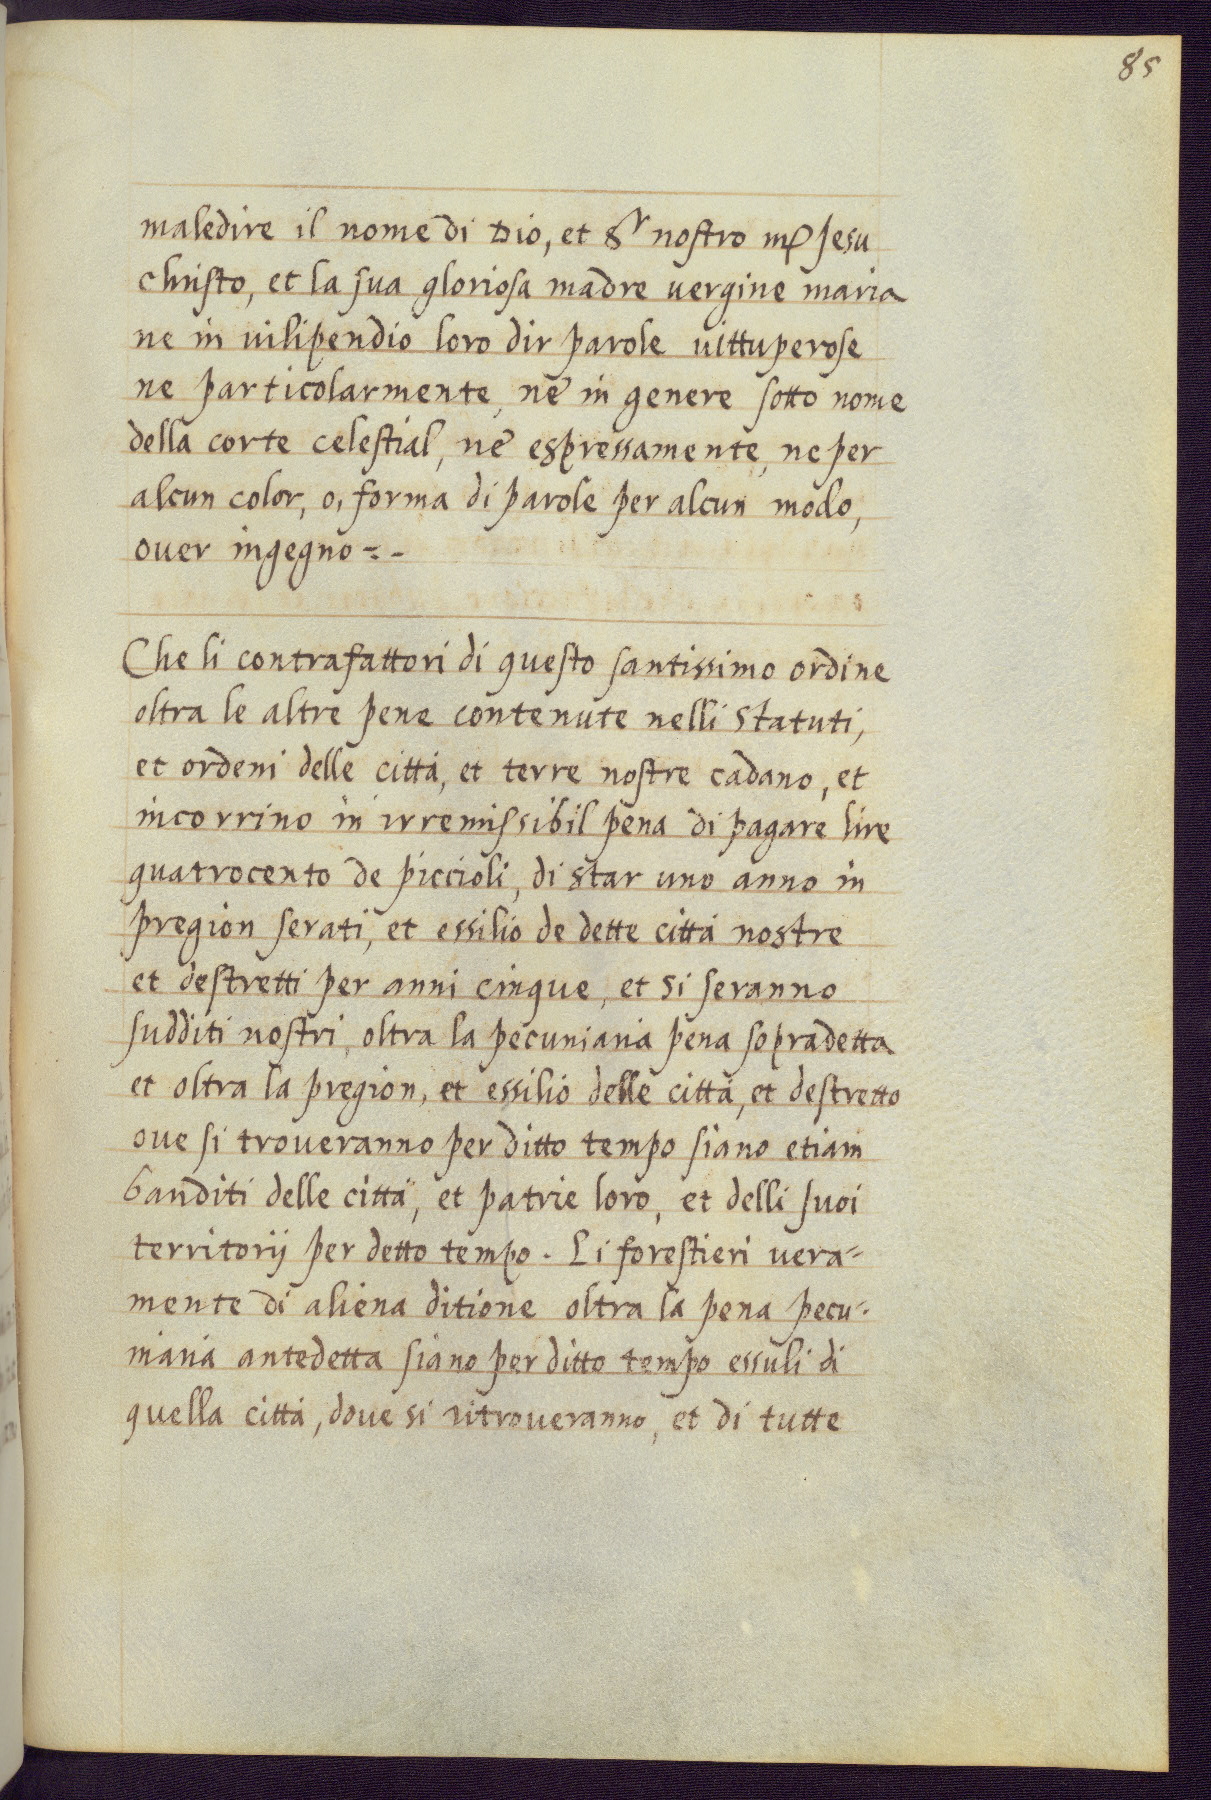 85
maledire il nome di Dio, et Sr nostro mr Jesu
christo, et la sua gloriosa madre vergine maria
ne in vilipendio loro dir parole vittuperose
ne particolarmente, ne in genere sotto nome
della corte celestial, ne espressamente, ne per
alcun color, o, forma di parole per alcun modo,
ouer ingegno =-
Che li contrafattori di questo santissimo ordine
oltra le altre pene contenute nelli statuti,
et ordeni delle città, et terre nostre cadano, et
incorrino in irremissibil pena di pagare lire
quatrocento de piccioli, di star uno anno in
pregion serati, et essilio de dette città nostre
et destretti per anni cinque, et si seranno
sudditi nostri, oltra la pecuniaria pena sopradetta
et oltra la pregion, et essilio delle città, et destretto
oue si troueranno per ditto tempo siano etiam
banditi delle città, et patrie loro, et delli suoi
territorij per detto tempo. Li forestieri uera=
mente di aliena ditione oltra la pena pecu=
niaria antedetta siano per ditto tempo essuli di
quella città, doue si ritroueranno, et di tutte